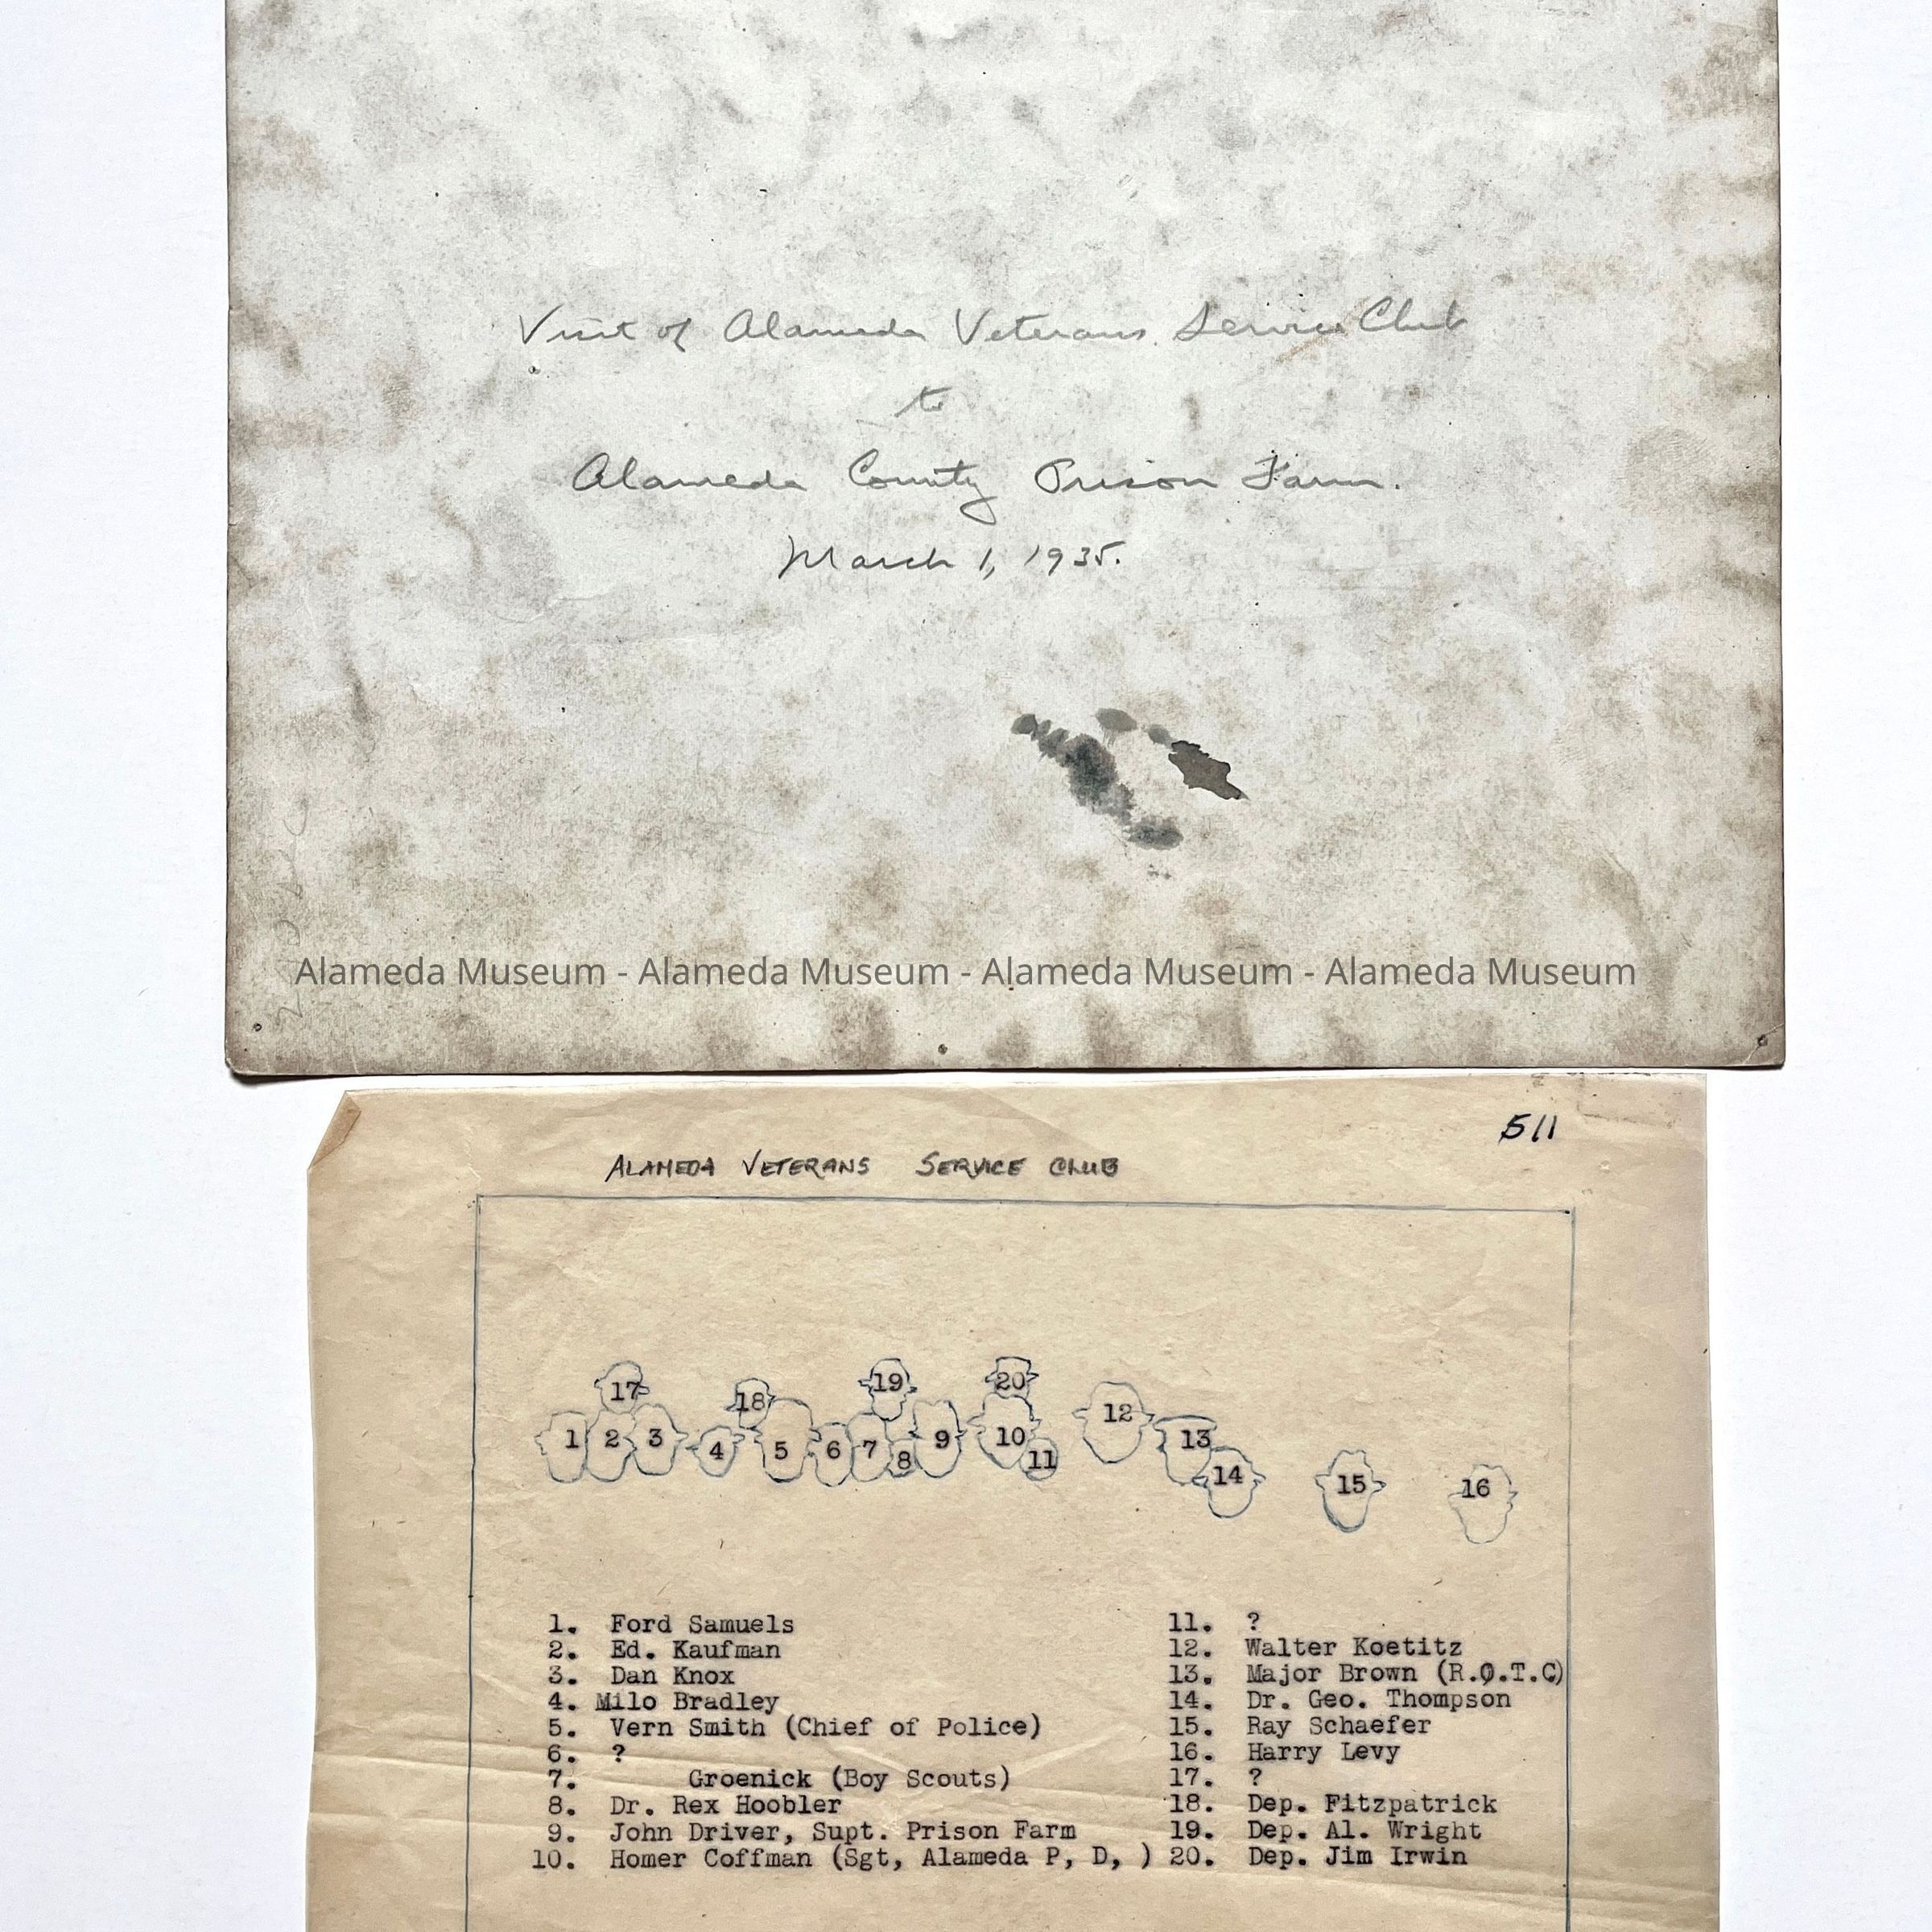 Visit of Alameda Veterans Service Club
to
Alameda County Prison Farm.
March 1, 1935.
Alameda Museum - Alameda Museum - Alameda Museum - Alameda Museum
511
ALAMEDA VETERANS SERVICE CLUB
17 18 19 20
1 2 3 4 5 6 7 8 9 10 11 12 13 14 15 16
1. Ford Samuels
2. Ed. Kaufman
3. Dan Knox
4. Milo Bradley
5. Vern Smith (Chief of Police)
6. ?
7. Groenick (Boy Scouts)
8. Dr. Rex Hoobler
9. John Driver, Supt. Prison Farm
10. Homer Coffman (Sgt, Alameda P, D, )
11. ?
12. Walter Koetitz
13. Major Brown (R.O.T.C)
14. Dr. Geo. Thompson
15. Ray Schaefer
16. Harry Levy
17. ?
18. Dep. Fitzpatrick
19. Dep. Al. Wright
20. Dep. Jim Irwin